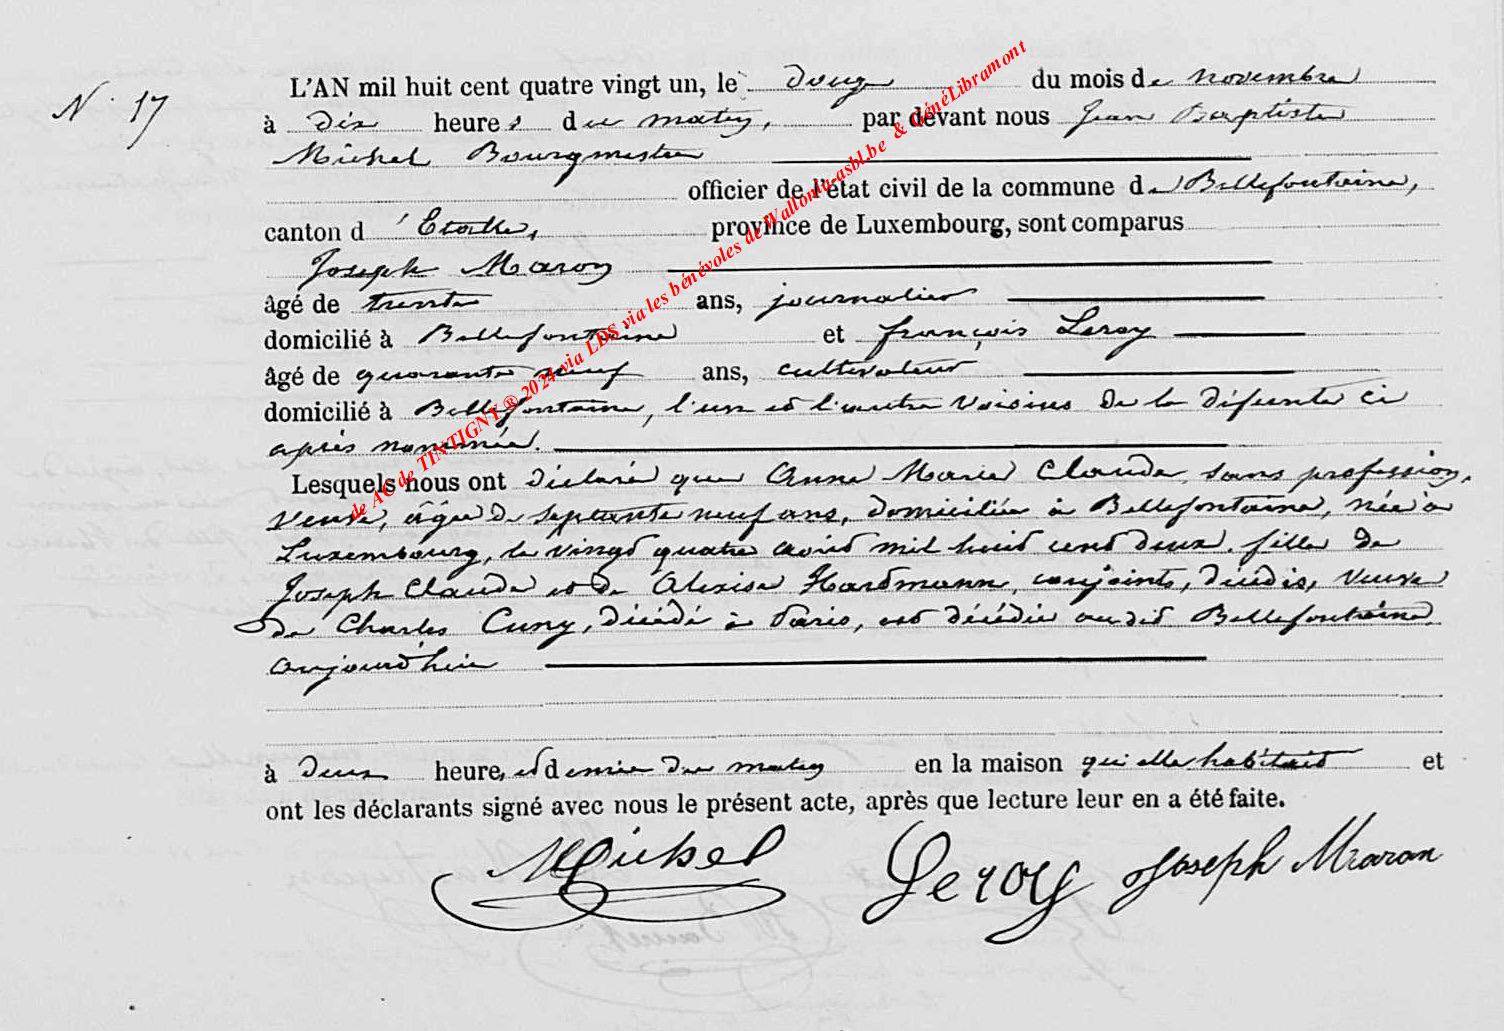 N° 17
L'AN mil huit cent quatre vingt un, le douze du mois de novembre
à dix heures du matin, par devant nous Jean Baptiste
Michel Bourgmestre
officier de l'état civil de la commune de Bellefontaine,
canton d'Etalle, province de Luxembourg, sont comparus
Joseph Maron
âgé de trente ans, journalier
domicilié à Bellefontaine et françois Leroy
âgé de quarante neuf ans, cultivateur
domicilié à Bellefontaine, l'un et l'autre voisins de la défunte ci
après nommée.
Lesquels nous ont déclaré que Anne Marie Claude, sans profession,
veuve, âgée de septante neuf ans, domiciliée à Bellefontaine, née à
Luxembourg, le vingt quatre août mil huit cent deux, fille de
Joseph Claude et de Alexise Hardmann, conjoints, décédés, veuve
de Charles Cuny, décédé à Paris, est décédée audit Bellefontaine,
aujourd'hui
à deux heures et demie du matin en la maison qu'elle habitait et
ont les déclarants signé avec nous le présent acte, après que lecture leur en a été faite.
Michel Leroy Joseph Maron
de AC de TINTIGNY ® 2024 via LDS via les bénévoles de Wallonia-asbl.be & GénéLibramont